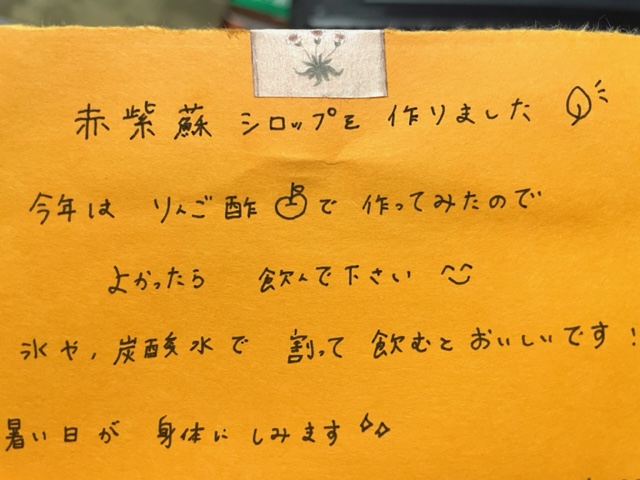 赤紫蘇 シロップを 作りました
今年は りんご酢で 作ってみたので
よかったら 飲んで下さい
氷や、炭酸水で 割って 飲むとおいしいです!
暑い日が 身体にしみます